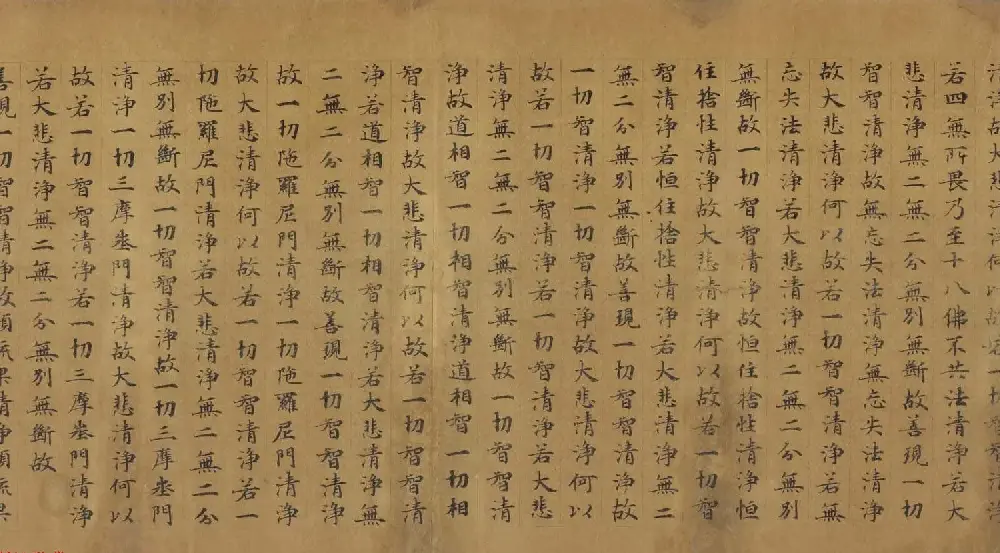 清淨故大悲清淨何以故若一切智智清淨
若四無所畏乃至十八佛不共法清淨若大
悲清淨無二無二分無別無斷故善現一切
智智清淨故無忘失法清淨無忘失法清淨
故大悲清淨何以故若一切智智清淨若無
忘失法清淨若大悲清淨無二無二分無別
無斷故一切智智清淨故恒住捨性清淨恒
住捨性清淨故大悲清淨何以故若一切智
智清淨若恒住捨性清淨若大悲清淨無二
無二分無別無斷故善現一切智智清淨故
一切智清淨一切智清淨故大悲清淨何以
故若一切智智清淨若一切智清淨若大悲
清淨無二無二分無別無斷故一切智智清
淨故道相智一切相智清淨道相智一切相
智清淨故大悲清淨何以故若一切智智清
淨若道相智一切相智清淨若大悲清淨無
二無二分無別無斷故善現一切智智清淨
故一切陁羅尼門清淨一切陁羅尼門清淨
故大悲清淨何以故若一切智智清淨若一
切陁羅尼門清淨若大悲清淨無二無二分
無別無斷故一切智智清淨故一切三摩地門
清淨一切三摩地門清淨故大悲清淨何以
故若一切智智清淨若一切三摩地門清淨
若大悲清淨無二無二分無別無斷故
善現一切智智清淨故預流果清淨預流果